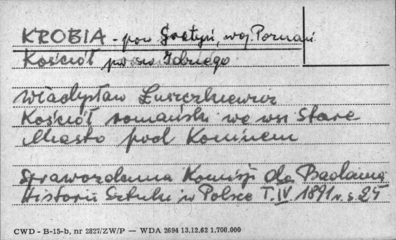 KROBIA - pow. Gostyń, woj. Poznań
Kościół p. w. św. Idziego
Władysław Łuszczkiewicz
Kościół romański we wsi Stare
Miasto pod Koninem
Sprawozdania Komisji dla Badania
Historii Sztuki w Polsce T. IV 1891 r. s. 25
CWD - B-15-b, nr 2827/ZW/P — WDA 2694 13.12.62 1.700.000